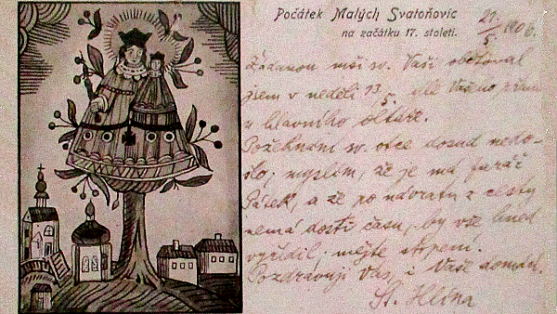 Počátek Malých Svatoňovic
na začátku 17. století.
21/5 1906.
Žádanou mši sv. Vaši obětoval
jsem v neděli 13/5 dle Vašeho přání
u hlavního oltáře.
Požehnání sv. otce dosud nedo-
šlo; myslím, že je má farář
Pátek, a že po návratu z cesty
nemá dosti času, by vše hned
vyřídil; mějte strpení.
Pozdravuji Vás i Vaše domácí.
St. Hlína